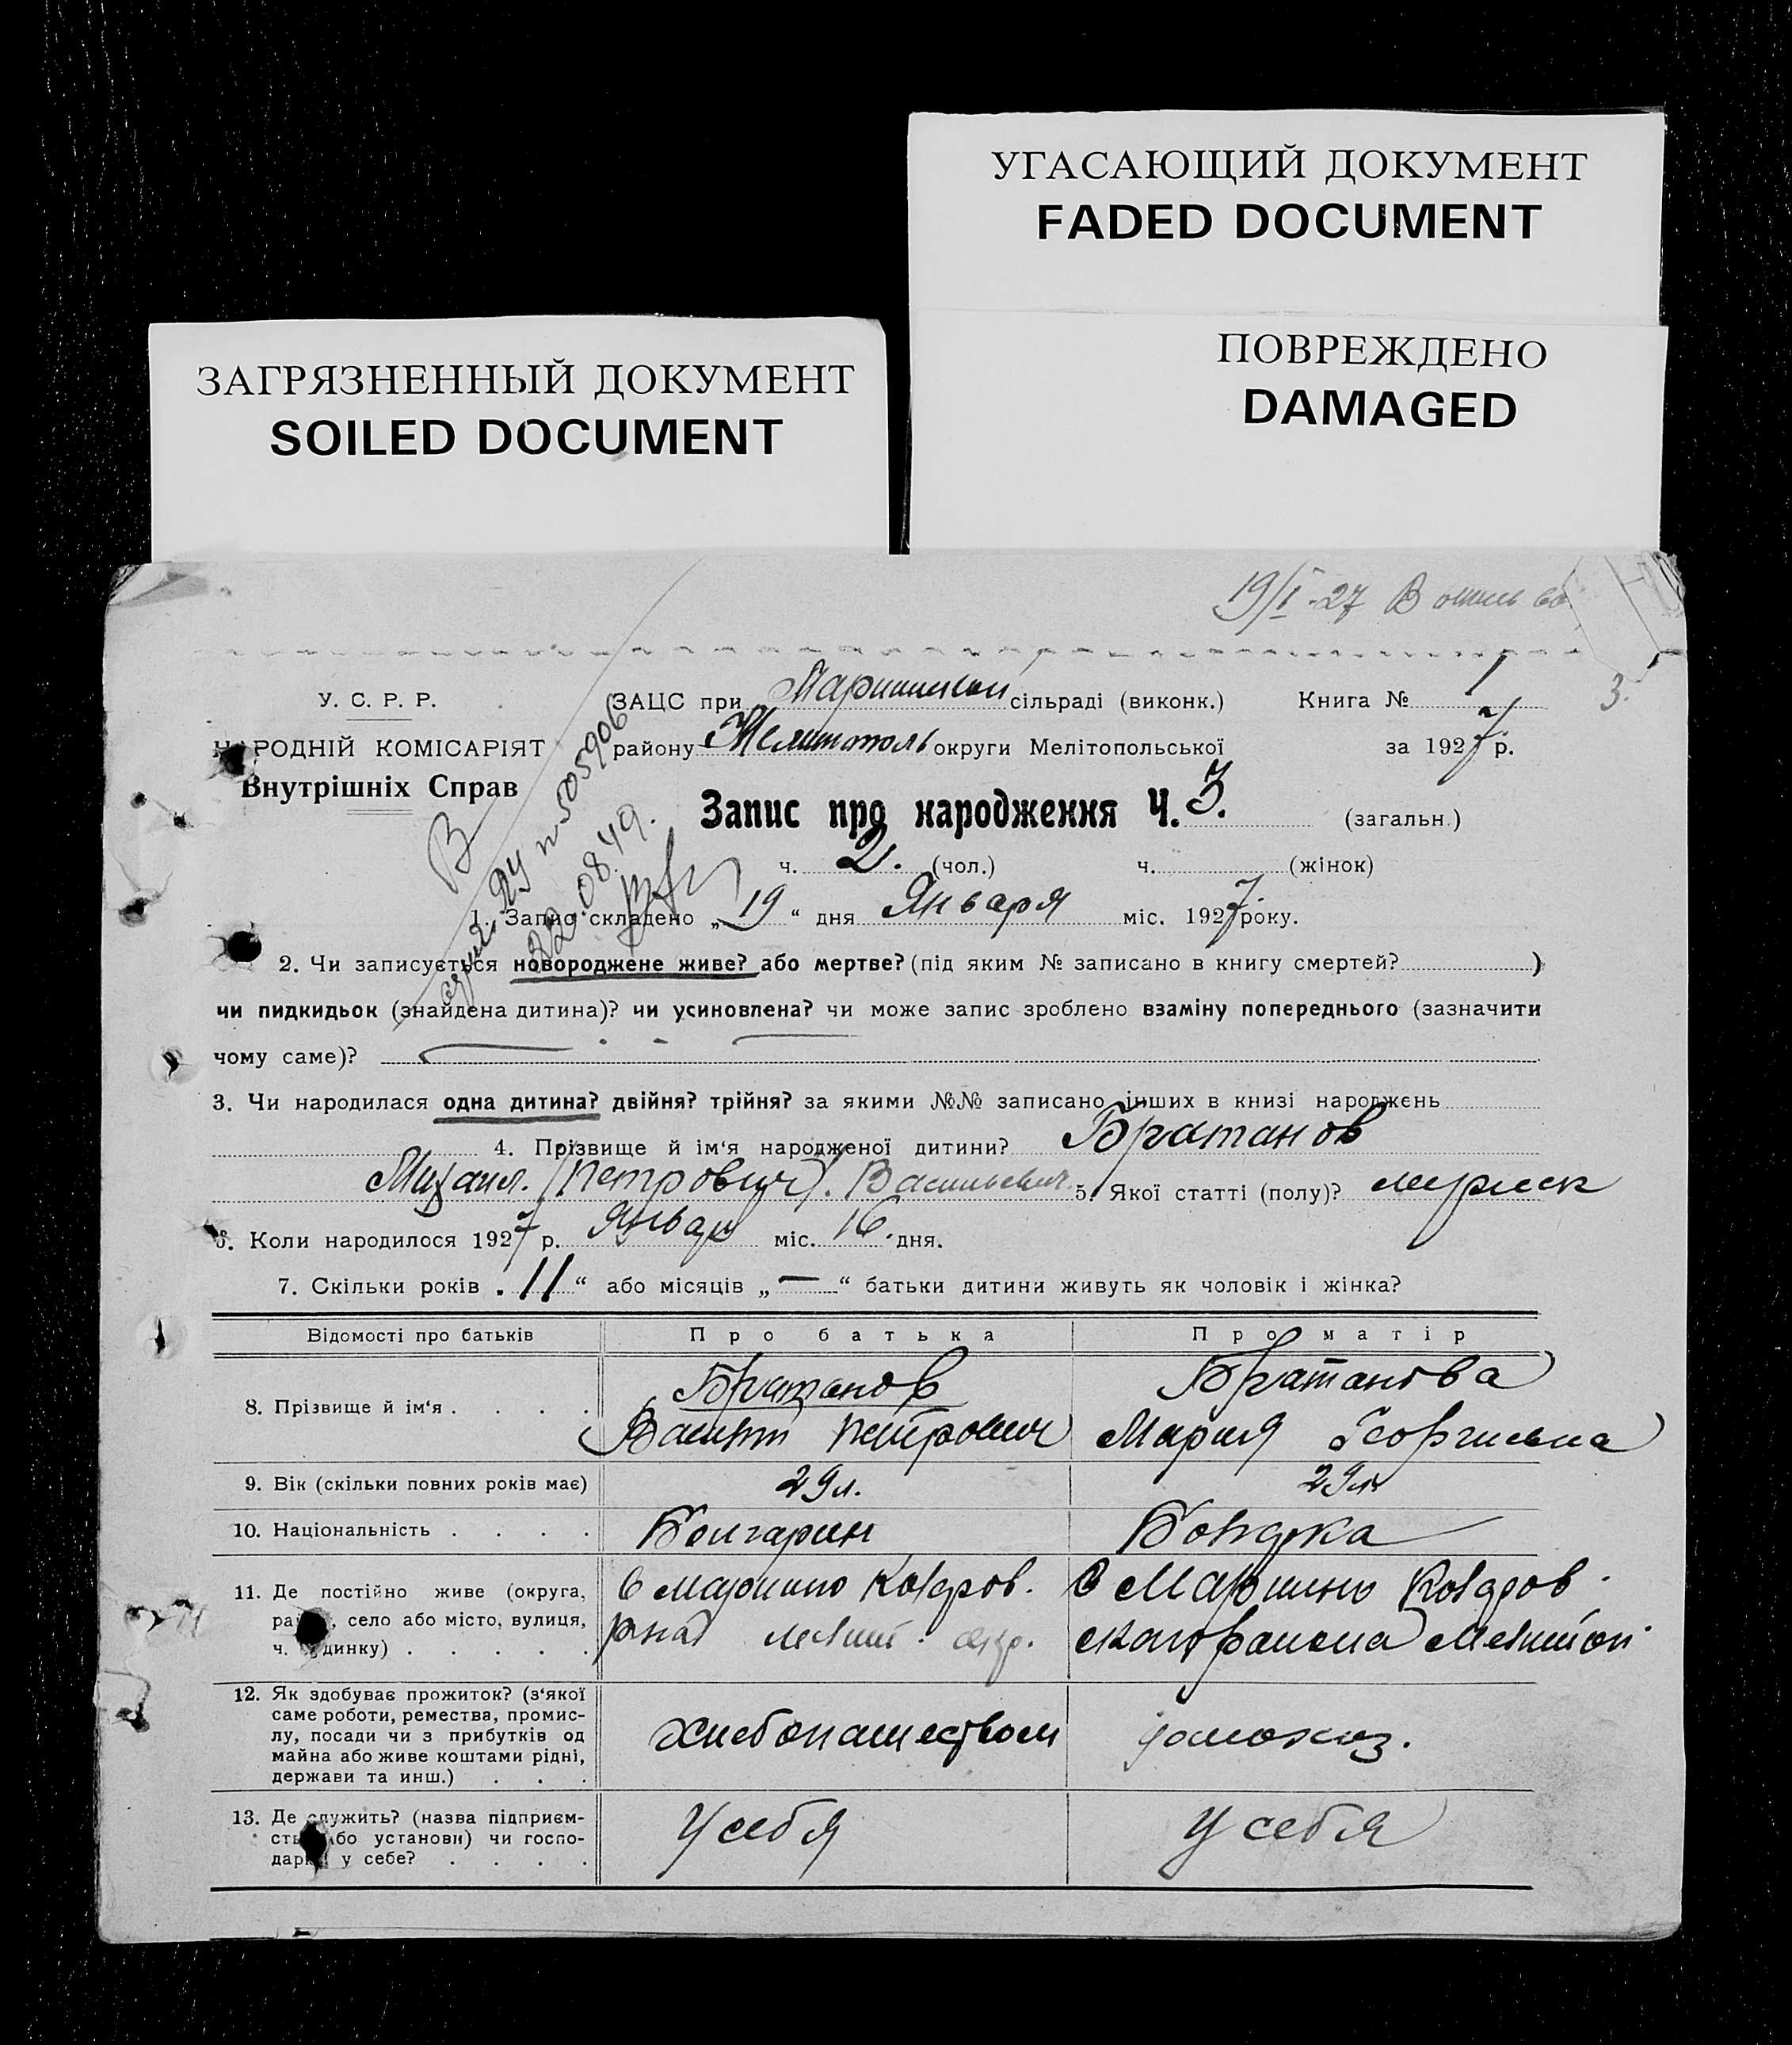 УГАСАЮЩИЙ ДОКУМЕНТ
FADED DOCUMENT
ПОВРЕЖДЕНО
DAMAGED
ЗАГРЯЗНЕННЫЙ ДОКУМЕНТ
SOILED DOCUMENT
19/I-27 В
У. С. Р. Р.
НАРОДНІЙ КОМІСАРІЯТ
Внутрішніх Справ
ЗАЦС при сільраді (виконк.) Книга № 1
3.
району Мелитополь округи Мелітопольської за 1927 р.
Запис про народження Ч. 3. (загальн.)
ч. 2. (чол.) ч. (жінок)
В
505906
22.08.49.
1. Запис складено „19“ дня Января міс. 1927 року.
2. Чи записується новороджене живе? або мертве? (під яким № записано в книгу смертей? )
чи пидкидьок (знайдена дитина)? чи усиновлена? чи може запис зроблено взаміну попереднього (зазначити
чому саме)?
3. Чи народилася одна дитина? двійня? трійня? за якими №№ записано інших в книзі народжень
4. Прізвище й ім‘я народженої дитини? Братанов
Михаил. (Петрович). Васильевич 5. Якої статті (полу)? мужск
6. Коли народилося 1927 р. Январ міс. 16. дня.
7. Скільки років „11“ або місяців „—“ батьки дитини живуть як чоловік і жінка?
Відомості про батьків Про батька Про матір
8. Прізвище й ім‘я . . . . Братанов Братанова
Василий Петрович Мария Георгиевна
9. Вік (скільки повних років має) 29 л. 29 л.
10. Національність . . . . Болгарин Болгарка
11. Де постійно живе (округа,
район, село або місто, вулиця,
ч. будинку) . . . . .
12. Як здобуває прожиток? (з‘якої
саме роботи, ремества, промис-
лу, посади чи з прибутків од
майна або живе коштами рідні,
держави та инш.) . . .
хлебопашеством домохоз.
13. Де служить? (назва підприєм-
ства або установи) чи госпо-
дарює у себе? . . . .
У себя У себя